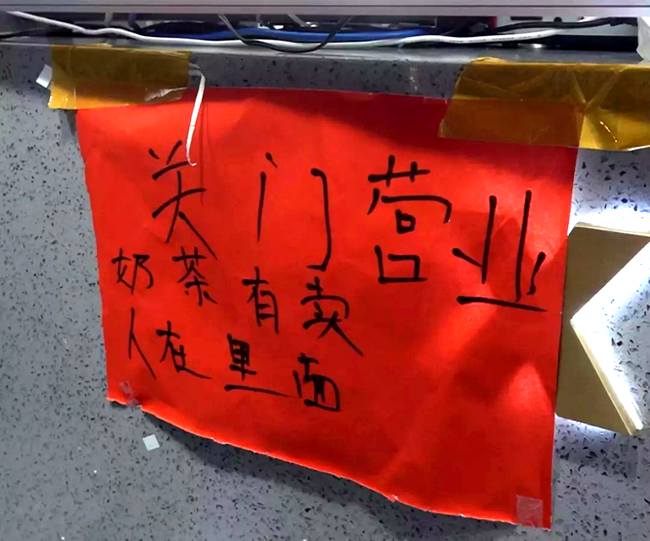 关门营业
奶茶有卖
人在里面